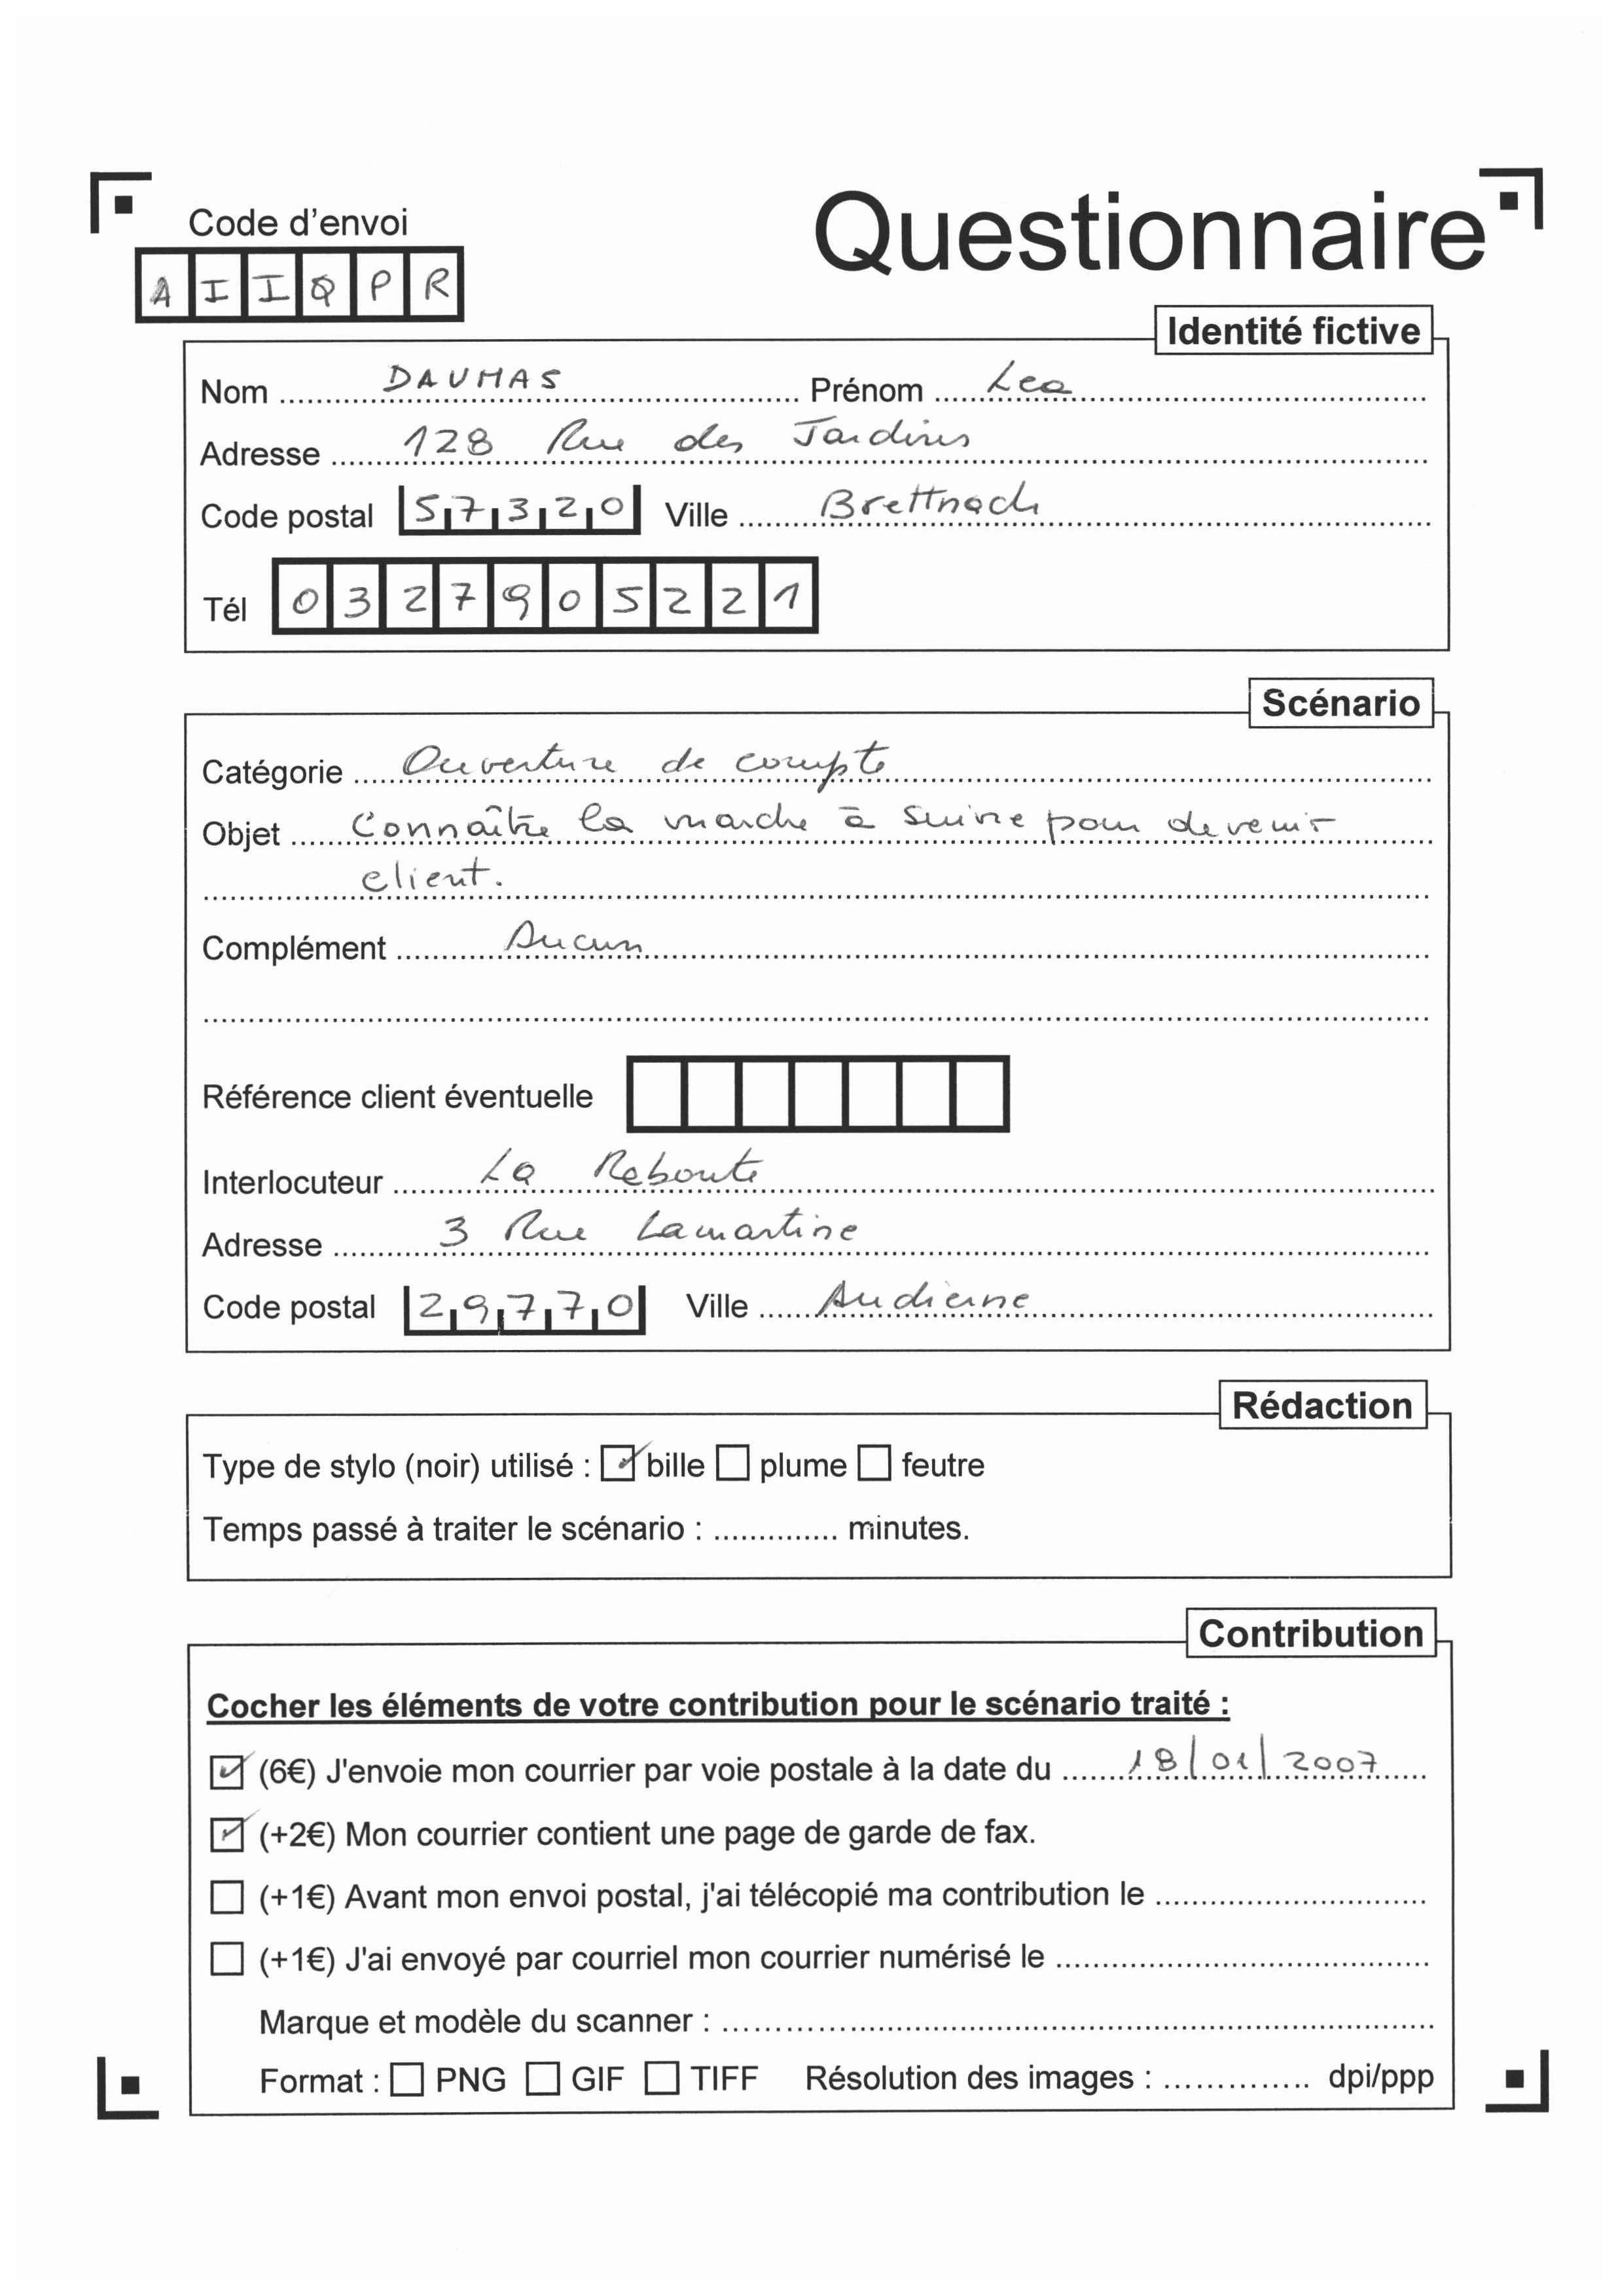 Code d'envoi
Questionnaire
A I I Q P R
Identité fictive
Nom DAUMAS Prénom Lea
Adresse 128 Rue des Jardins
Code postal 57320 Ville Brettnach
Tél 0327905221
Scénario
Catégorie Ouverture de compte
Objet Connaître la marche à suivre pour devenir
client.
Complément Aucun
Référence client éventuelle
Interlocuteur La Reboute
Adresse 3 Rue Lamartine
Code postal 29770 Ville Audierne
Rédaction
Type de stylo (noir) utilisé : bille plume feutre
Temps passé à traiter le scénario : .............. minutes.
Contribution
Cocher les éléments de votre contribution pour le scénario traité :
(6€) J'envoie mon courrier par voie postale à la date du 18/01/2007
(+2€) Mon courrier contient une page de garde de fax.
(+1€) Avant mon envoi postal, j'ai télécopié ma contribution le
(+1€) J'ai envoyé par courriel mon courrier numérisé le
Marque et modèle du scanner :
Format : PNG GIF TIFF Résolution des images : .............. dpi/ppp